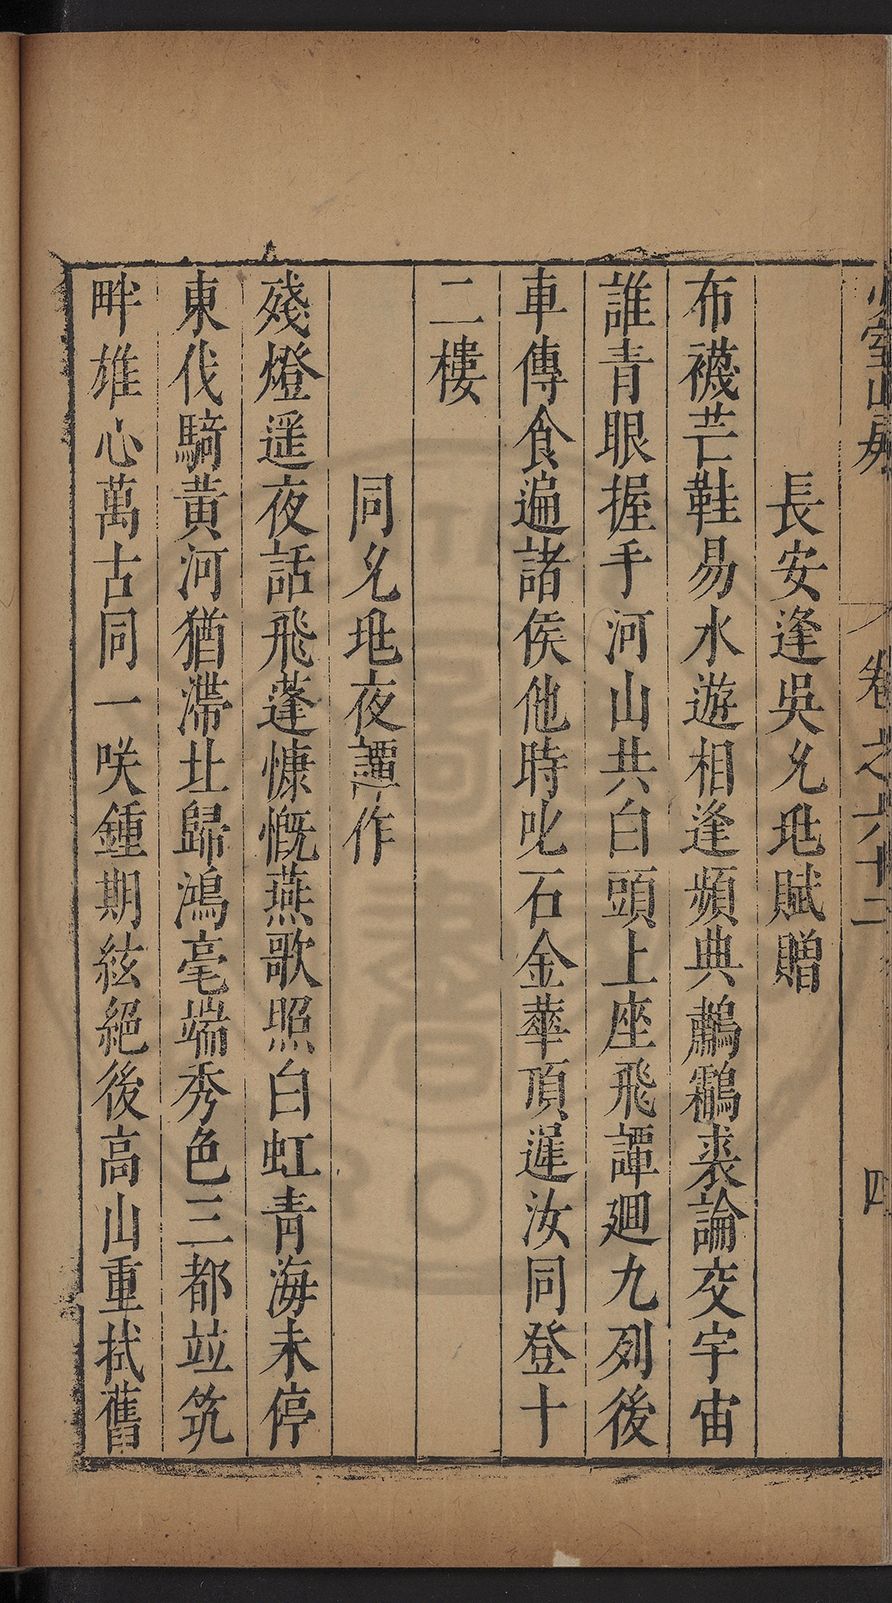 少室山房
卷之六十二
四
長安逢吳允兆賦贈
布襪芒鞋易水遊相逢頻典鷫鸘裘論交宇宙
誰青眼握手河山共白頭上座飛譚迴九列後
車傳食遍諸侯他時叱石金華頂遲汝同登十
二樓
同允兆夜譚作
殘燈遥夜話飛蓬慷慨燕歌照白虹青海未停
東伐騎黃河猶滯北歸鴻毫端秀色三都竝筑
畔雄心萬古同一咲鍾期絃絕後高山重拭舊